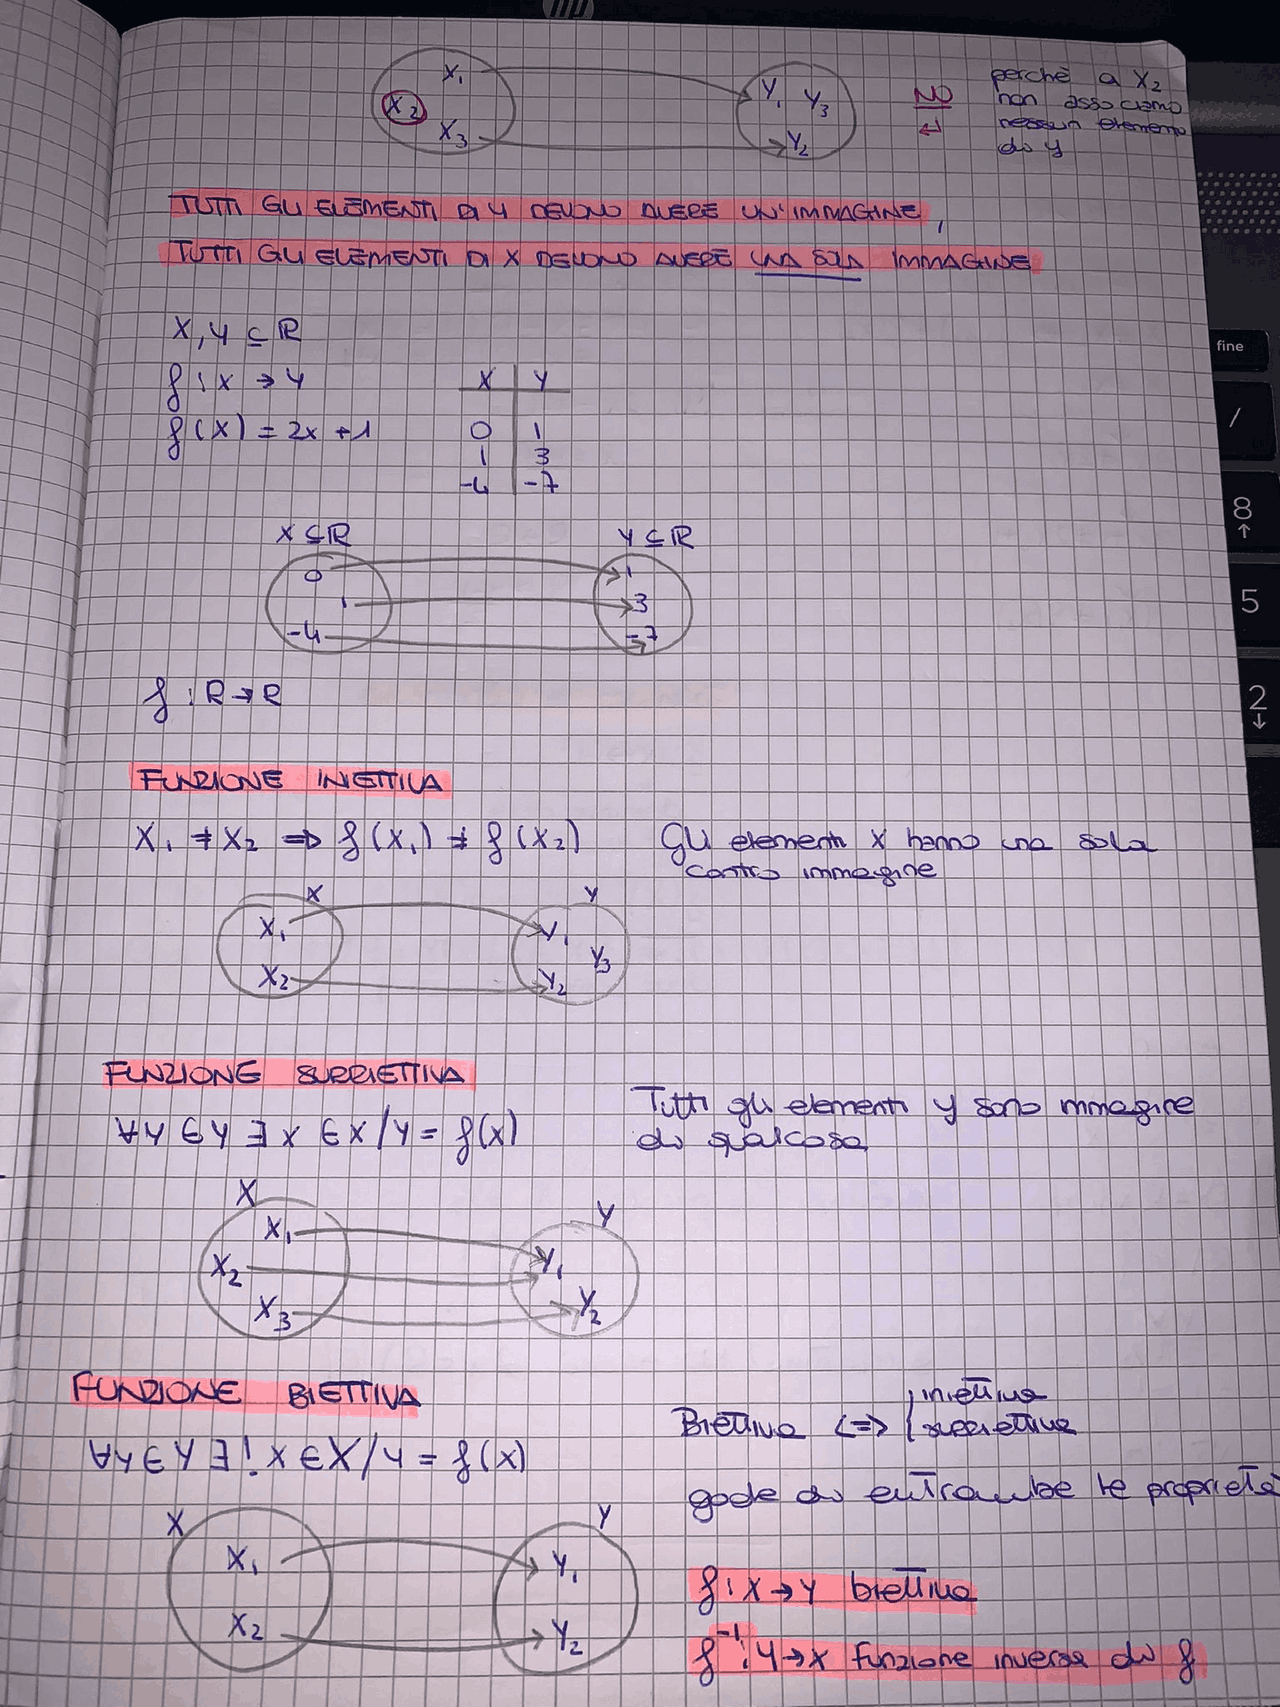 X₁
X₂
X₃
Y₁ Y₃
Y₂
NO
perchè a X₂
non associamo
nessun elemento
di y
TUTTI GLI ELEMENTI DI Y DEVONO AVERE UN'IMMAGINE,
TUTTI GLI ELEMENTI DI X DEVONO AVERE UNA SOLA IMMAGINE
X, Y ⊆ R
f: X → Y
f(X) = 2x + 1
X Y
0 1
1 3
-4 -7
X ⊆ R Y ⊆ R
0 1
1 3
-4 -7
f: R → R
FUNZIONE INIETTIVA
X₁ ≠ X₂ ⇒ f(X₁) ≠ f(X₂) Gli elementi X hanno una sola
contro immagine
X Y
X₁ Y₁
Y₃
X₂ Y₂
FUNZIONE SURRIETTIVA
∀ Y ∈ Y ∃ X ∈ X / Y = f(x) Tutti gli elementi y sono immagine
di qualcosa
X Y
X₁
X₂ Y₁
X₃ Y₂
FUNZIONE BIETTIVA
Biettiva ⇔ { iniettiva
surriettiva
∀ y ∈ Y ∃! x ∈ X / Y = f(x)
gode di entrambe le proprietà
X Y
X₁ Y₁
X₂ Y₂
f: X → Y biettiva
f⁻¹: Y → X funzione inversa di f
fine
/
8
↑
5
2
↓